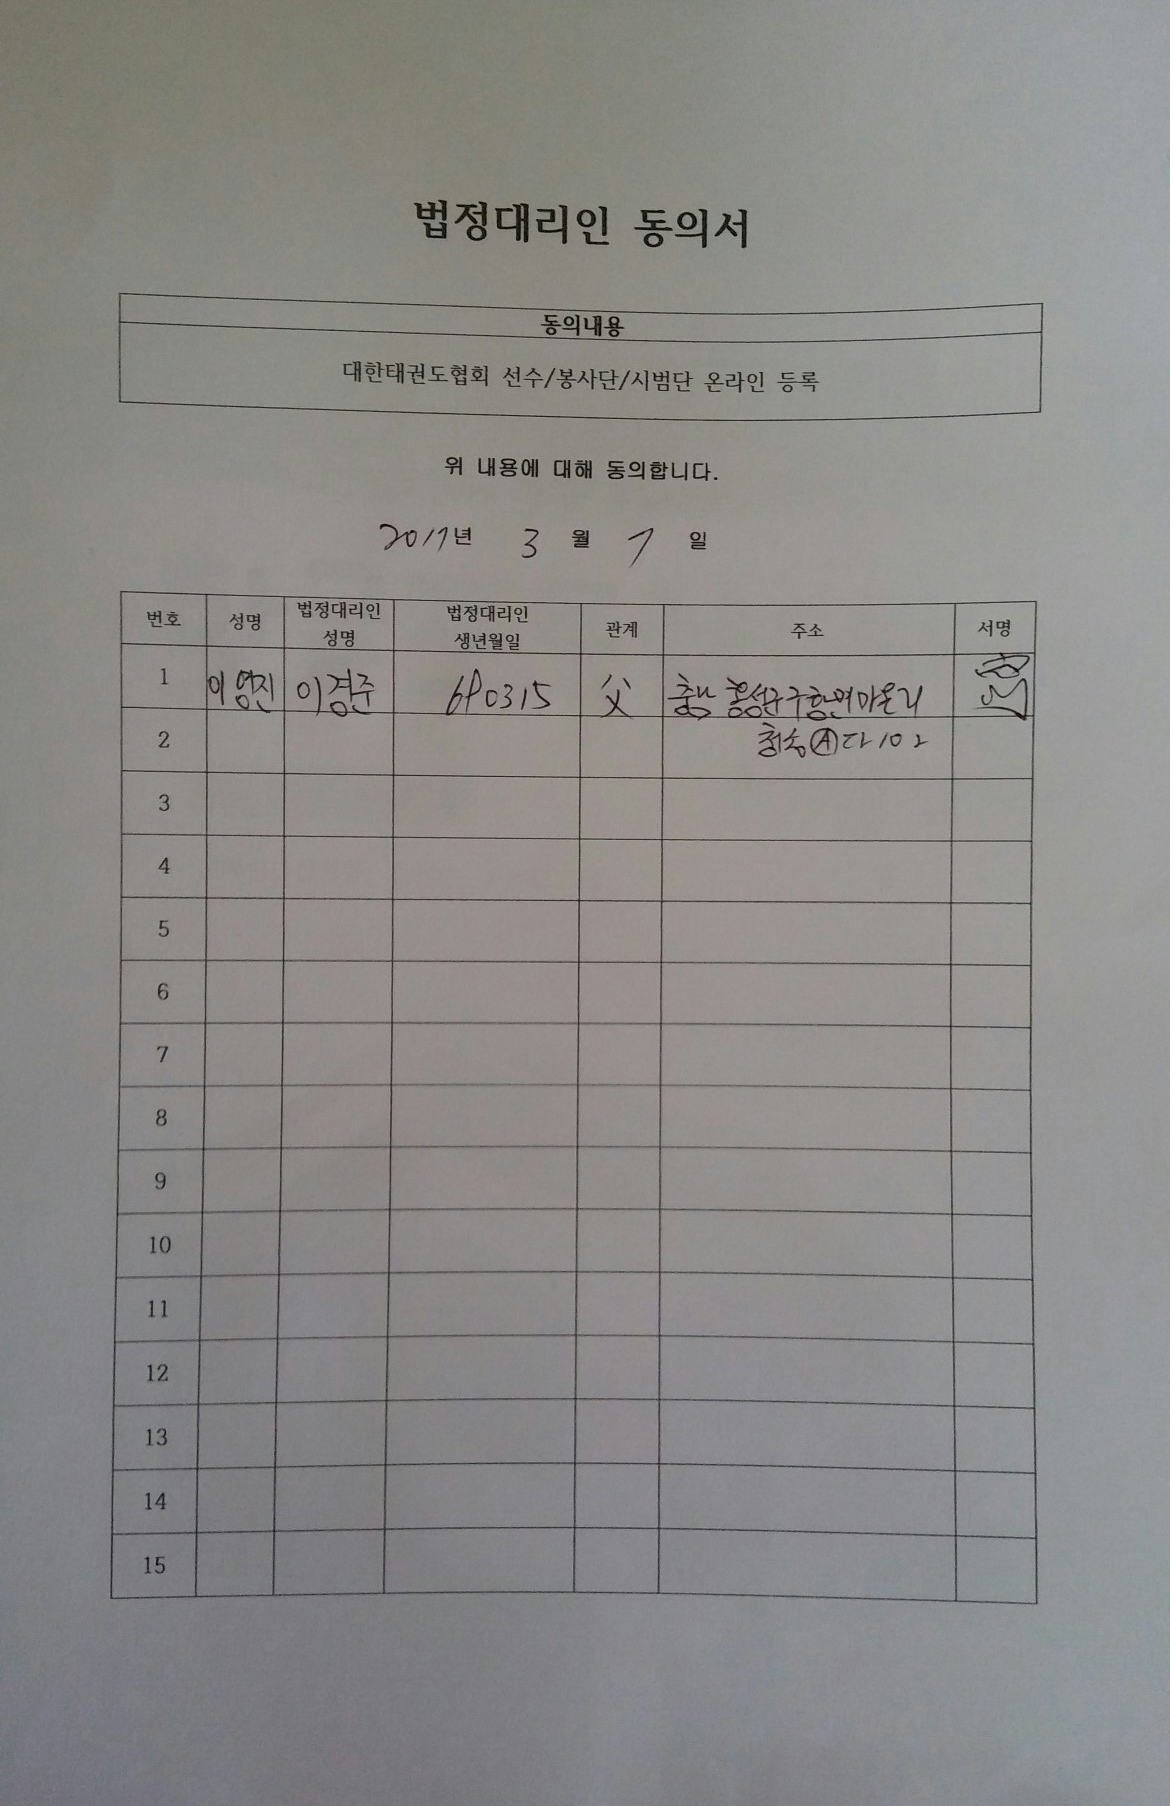 법정대리인 동의서
동의내용
대한태권도협회 선수/봉사단/시범단 온라인 등록
위 내용에 대해 동의합니다.
2017년 3 월 7 일
번호 성명 법정대리인 성명 법정대리인 생년월일 관계 주소 서명
1 이영진 이경주 690315 父 충남 홍성군 구항면 마온리
2 청송Ⓐ 다 102
3
4
5
6
7
8
9
10
11
12
13
14
15